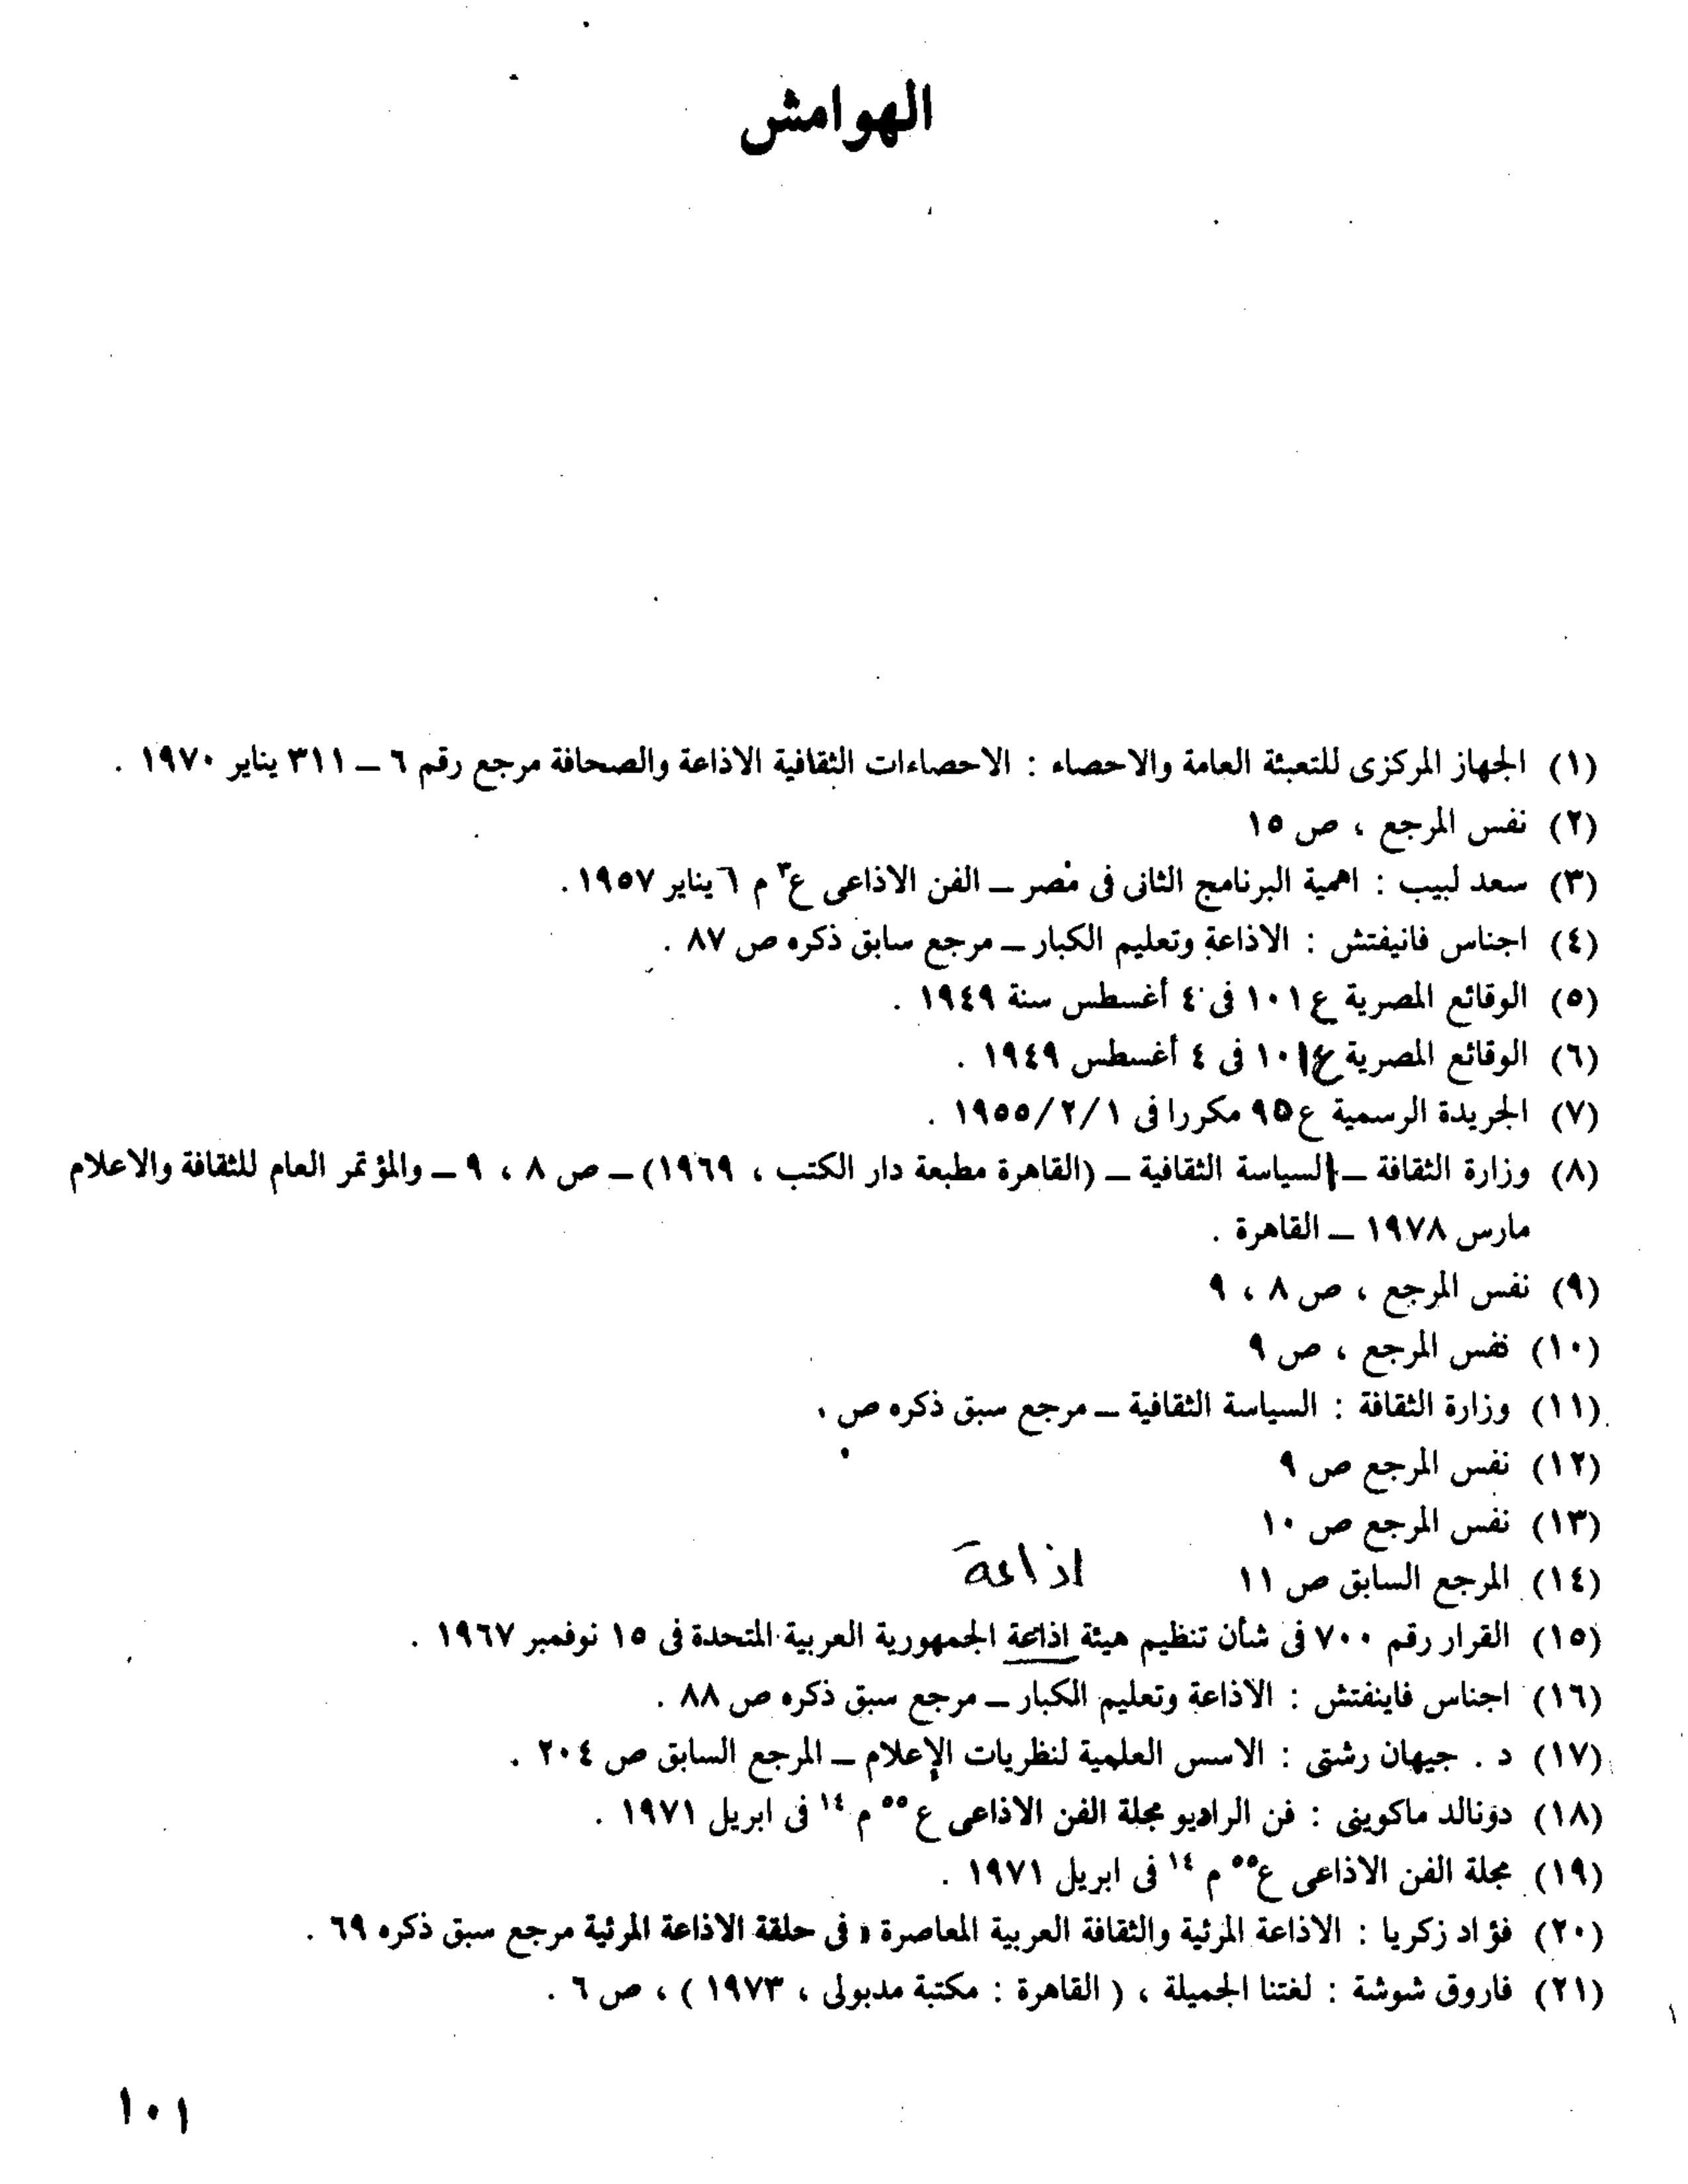 الهوامش
(١) الجهاز المركزى للتعبئة العامة والاحصاء : الاحصاءات الثقافية الاذاعة والصحافة مرجع رقم ٦ – ٣١١ يناير ١٩٧٠ .
(٢) نفس المرجع ، ص ١٥
(٣) سعد لبيب : اهمية البرنامج الثانى فى مصر – الفن الاذاعى ع٣ م ٦ يناير ١٩٥٧ .
(٤) اجناس فانيفتش : الاذاعة وتعليم الكبار – مرجع سابق ذكره ص ٨٧ .
(٥) الوقائع المصرية ع ١٠١ فى ٤ أغسطس سنة ١٩٤٩ .
(٦) الوقائع المصرية ع ١٠١ فى ٤ أغسطس ١٩٤٩ .
(٧) الجريدة الرسمية ع ٩٥ مكررا فى ١/٢/١٩٥٥ .
(٨) وزارة الثقافة – السياسة الثقافية – (القاهرة مطبعة دار الكتب ، ١٩٦٩) – ص ٨ ، ٩ – والمؤتمر العام للثقافة والاعلام
مارس ١٩٧٨ – القاهرة .
(٩) نفس المرجع ، ص ٨ ، ٩
(١٠) نفس المرجع ، ص ٩
(١١) وزارة الثقافة : السياسة الثقافية – مرجع سبق ذكره ص ،
(١٢) نفس المرجع ص ٩
(١٣) نفس المرجع ص ١٠
اذاعة
(١٤) المرجع السابق ص ١١
(١٥) القرار رقم ٧٠٠ فى شأن تنظيم هيئة اذاعة الجمهورية العربية المتحدة فى ١٥ نوفمبر ١٩٦٧ .
(١٦) اجناس فاينفتش : الاذاعة وتعليم الكبار – مرجع سبق ذكره ص ٨٨ .
(١٧) د . جيهان رشتى : الاسس العلمية لنظريات الإعلام – المرجع السابق ص ٢٠٤ .
(١٨) دونالد ماكوينى : فن الراديو مجلة الفن الاذاعى ع ٥٥ م ١٤ فى ابريل ١٩٧١ .
(١٩) مجلة الفن الاذاعى ع ٥٥ م ١٤ فى ابريل ١٩٧١ .
(٢٠) فؤاد زكريا : الاذاعة المرئية والثقافة العربية المعاصرة « فى حلقة الاذاعة المرئية مرجع سبق ذكره ٦٩ .
(٢١) فاروق شوشة : لغتنا الجميلة ، ( القاهرة : مكتبة مدبولى ، ١٩٧٣ ) ، ص ٦ .
١٠١